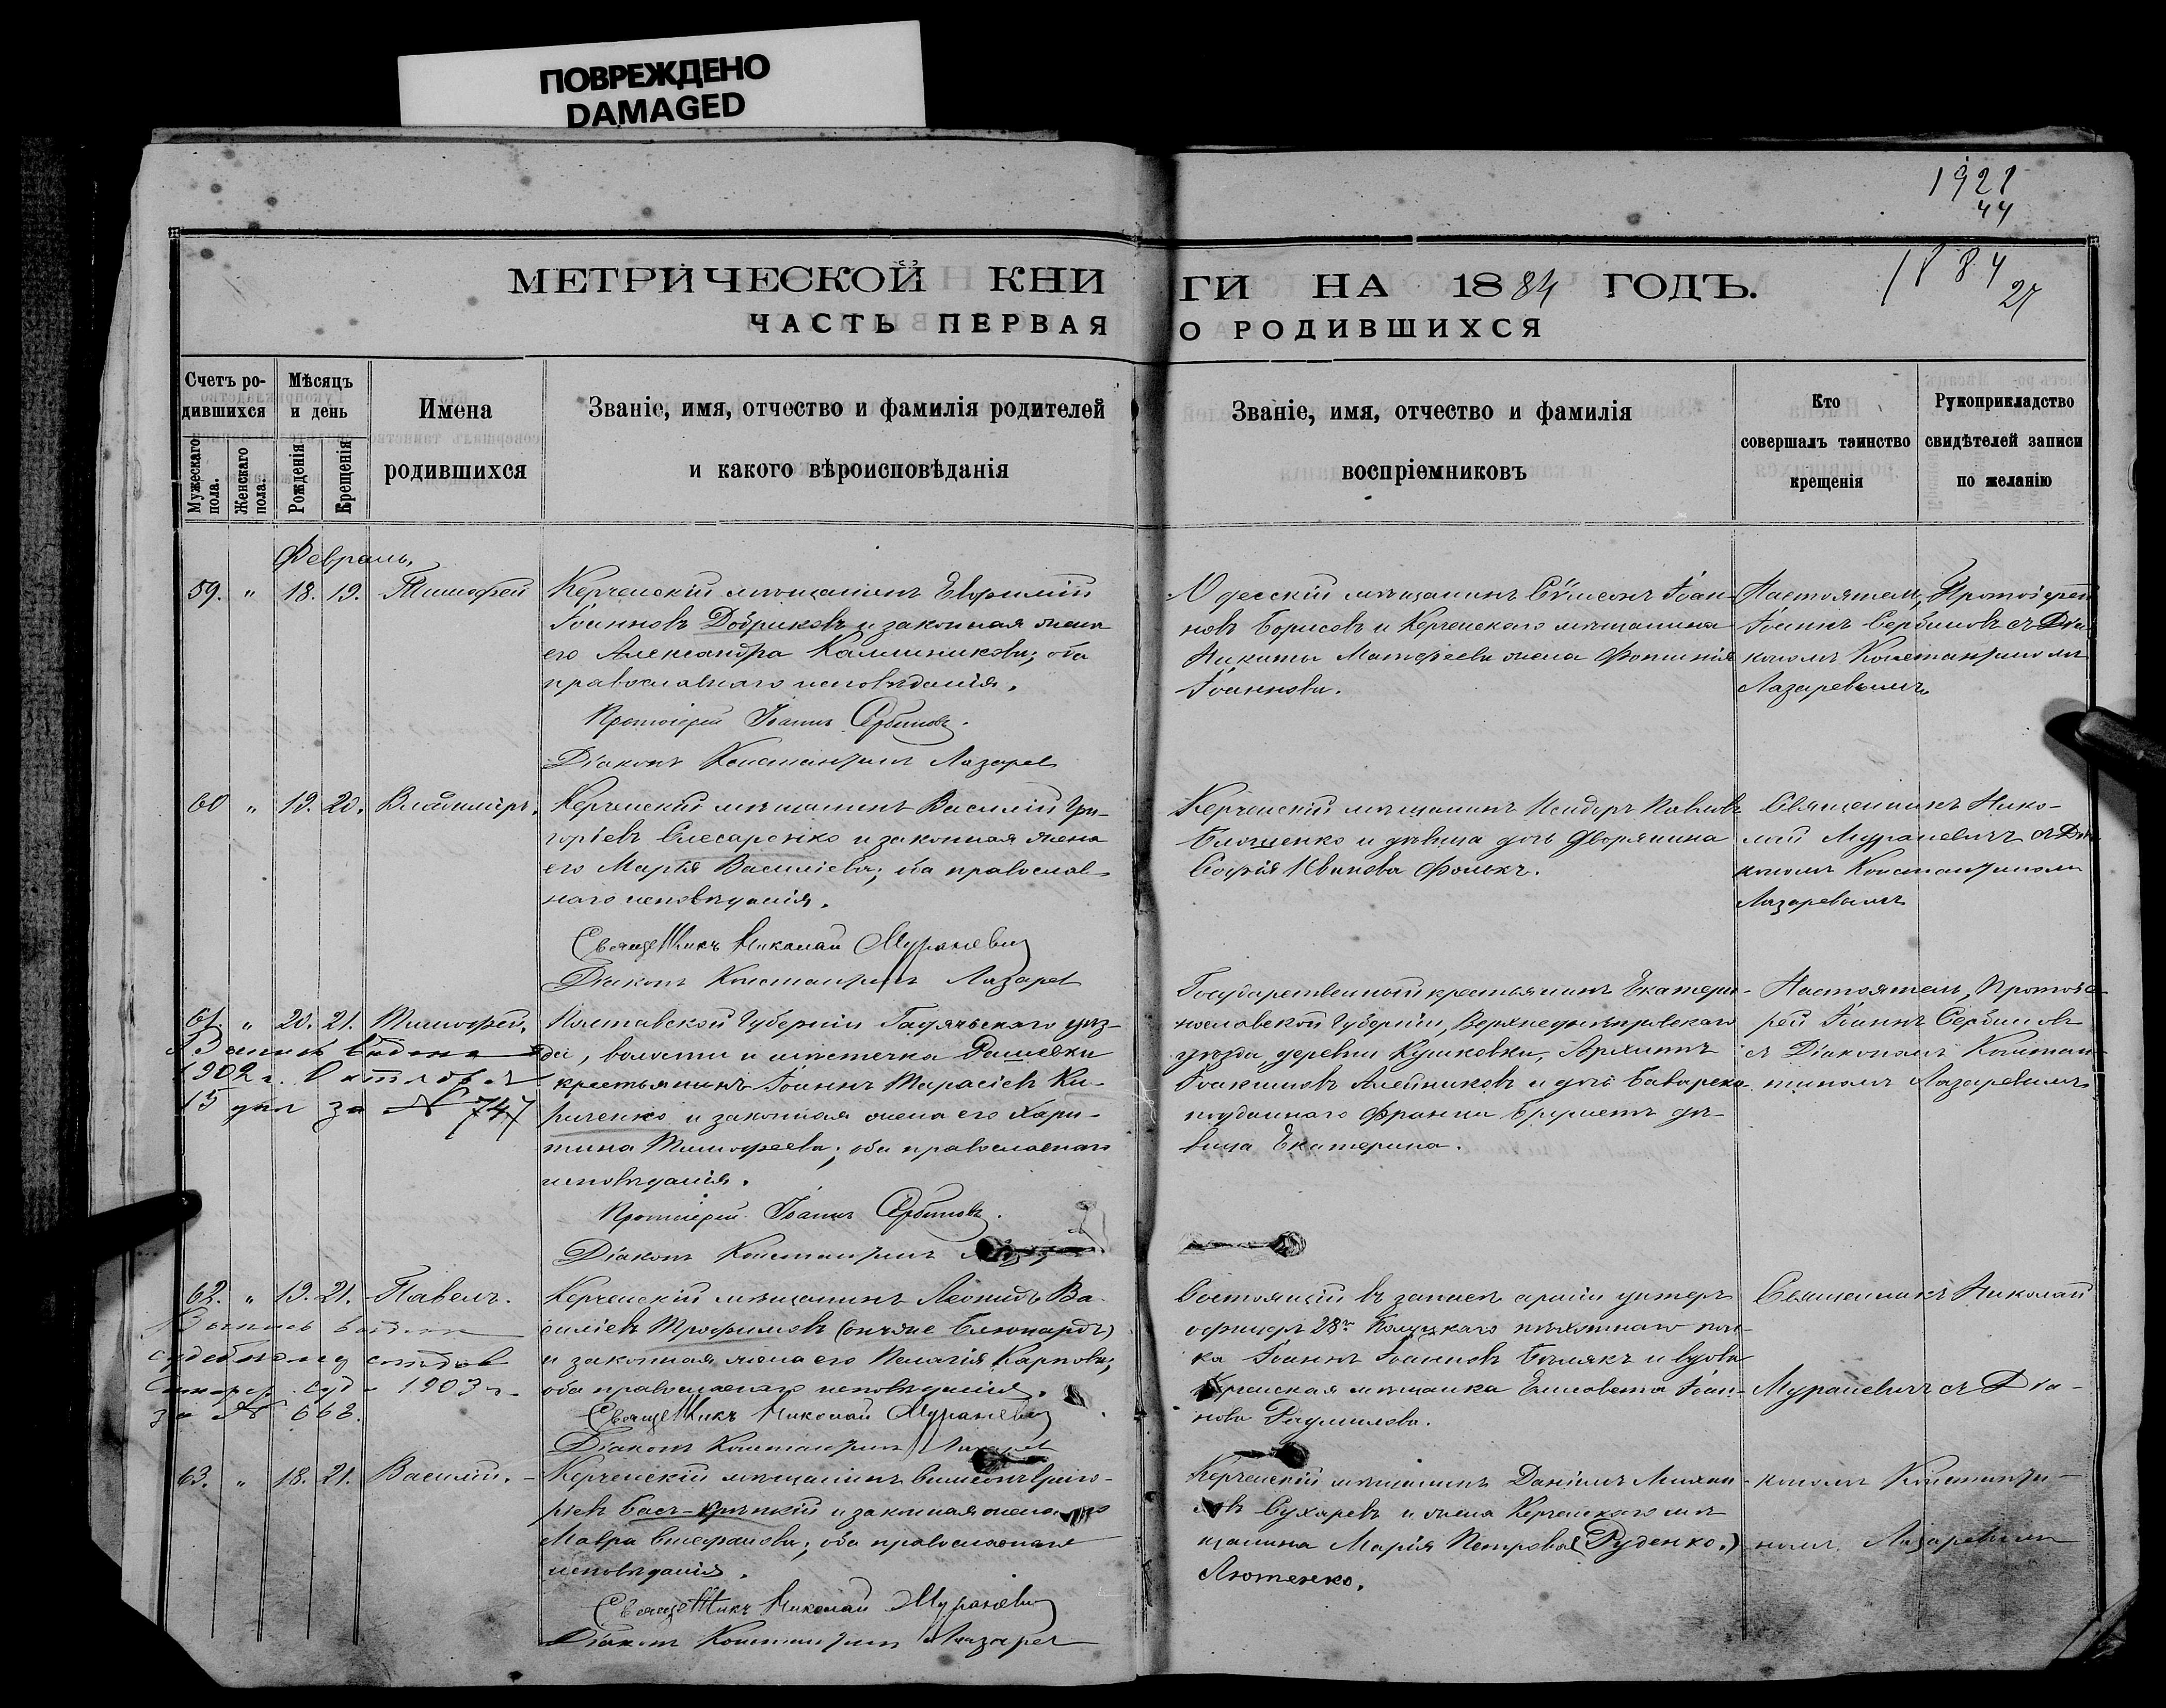 ПОВРЕЖДЕНО
DAMAGED
1921
44
1884
27
МЕТРИЧЕСКОЙ КНИ
ГИ НА 1884 ГОДЪ.
ЧАСТЬ ПЕРВАЯ
О РОДИВШИХСЯ
Счетъ ро-
дившихся
Мужескаго пола.
Женскаго пола.
Мѣсяцъ
и день
Рожденія
Крещенія
Имена
родившихся
Званіе, имя, отчество и фамилія родителей
и какого вѣроисповѣданія
Званіе, имя, отчество и фамилія
воспріемниковъ
Кто
совершалъ таинство
крещенія
Рукоприкладство
свидѣтелей записи
по желанію
Февраль,
59. " 18. 19. Тимофей
Керченскій мѣщанинъ Евфимій
Іоанновъ Добриковъ и законная жена
его Александра Калинникова; оба
православнаго исповѣданія.
Протоіерей Іоаннъ Сербиновъ.
Діаконъ Константинъ Лазарев
Одесскій мѣщанинъ Сѵмеонъ Іоан-
новъ Борисовъ и Керченскаго мѣщанина
Никиты Матфеева жена Фотинія
Іоаннова.
Настоятель, Протоіерей
Іоаннъ Сербиновъ съ Діа
кономъ Константиномъ
Лазаревымъ
60 " 19. 20. Владиміръ.
Керченскій мѣщанинъ Василій Гри-
горіевъ Слесаренко и законная жена
его Марія Василіева; оба православ-
наго исповѣданія.
Священникъ Николай Мураневич
Діаконъ Константинъ Лазарев
Керченскій мѣщанинъ Исидоръ Павловъ
Блощенко и дѣвица дочь дворянина
Софія Иванова Фолькъ.
Священникъ Нико-
лай Мураневичъ съ Діа
кономъ Константиномъ
Лазаревымъ
61. " 20. 21. Тимофей.
Выпись видана
1902 г. Октября
15 дня за № 747
Полтавской Губерніи Гадячьскаго уѣз-
да, волости и мѣстечка Рашевки
крестьянинъ Іоаннъ Тарасіевъ Ки-
риченко и законная жена его Хари-
тина Тимофеева; оба православнаго
исповѣданія.
Протоіерей Іоаннъ Сербиновъ.
Діаконъ Константинъ
Государственный крестьянинъ Екатери-
нославской Губерніи, Верхнеднѣпровскаго
уѣзда, деревни Кушковки, Архиппъ
Іоакимовъ Алейниковъ и дочь Баварско-
подданнаго Франца Бруметъ дѣ-
вица Екатерина.
Настоятель, Протоіе-
рей Іоаннъ Сербиновъ
съ Діакономъ Констан-
тиномъ Лазаревымъ
62. " 19. 21. Павелъ.
Выпись видана
1903 г.
за № 663.
Керченскій мѣщанинъ Леонидъ Ва-
силіевъ Трофимовъ (онъ же Блюнардъ)
и законная жена его Пелагія Карпова;
оба православнаго исповѣданія.
Священникъ Николай Мураневич
Діаконъ Константинъ Лазарев
Состоящій въ запасѣ арміи унтеръ
офицеръ 28го Полоцкаго пѣхотнаго пол-
ка Іоаннъ Іоанновъ Бѣлякъ и вдова
Керченская мѣщанка Елисавета Іоан-
нова Радмилова.
Священникъ Николай
Мураневичъ съ Діа-
63. " 18. 21. Василій.
Керченскій мѣщанинъ Симеонъ Григо-
рьевъ Басъ-Крѣпкій и законная жена его
Мавра Стефанова; оба православнаго
исповѣданія.
Священникъ Николай Мураневич
Діаконъ Константинъ Лазарев
Керченскій мѣщанинъ Даніилъ Михаи-
ловъ Сухаревъ и жена Керченскаго мѣ
щанина Марія Петрова (Руденко.)
Лютенко.
кономъ Константи-
номъ Лазаревымъ